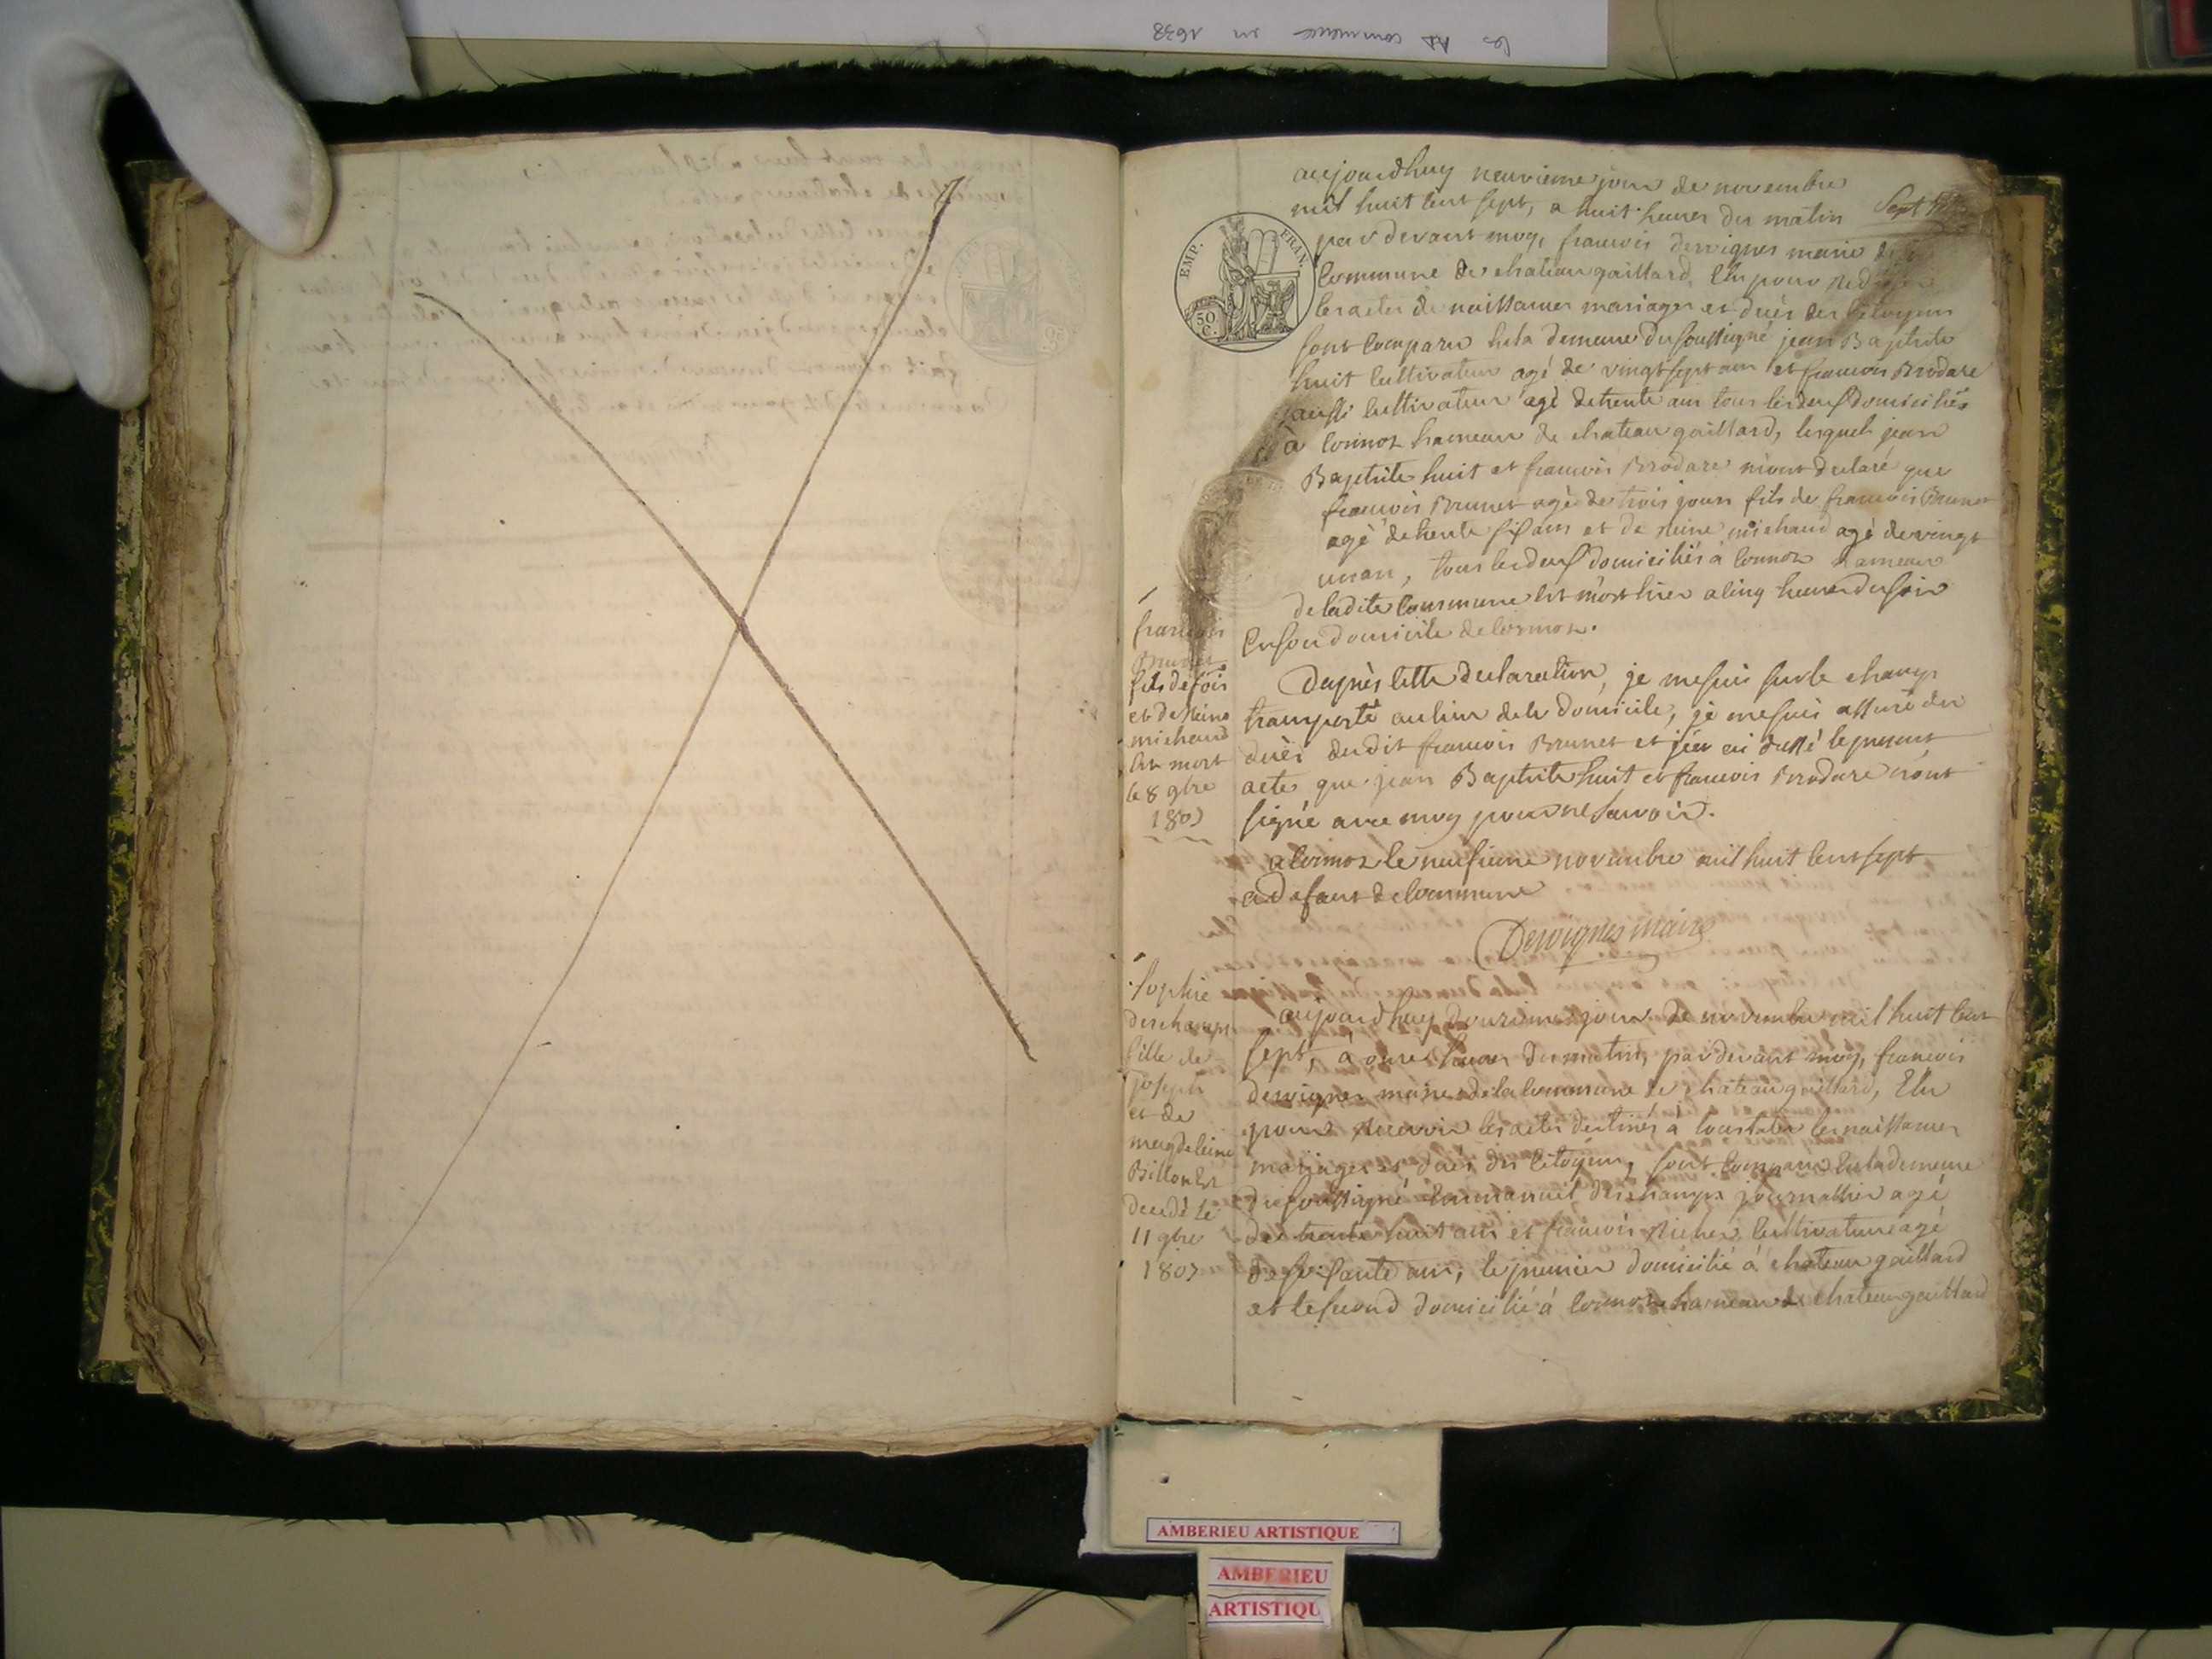 les AD commence en 1638
aujourdhuy neuvieme jour de novembre
mil huit cent sept, a huit heures du matin
Sept
par devant moy, francois dervignes maire de
EMP. FRAN.
50 C.
Commune de chateau gaillard, Elu pour
les actes de naissances mariages et décès des Citoyens
sont Comparu en la demeure du soussigné jean Baptiste
huit Cultivateur agé de vingt sept ans et francois Brodare
aussi Cultivateur agé de trente ans tous les deux domiciliés
à Cormoz hameau de chateau gaillard, lesquels jean
Baptiste huit et francois Brodare m'ont declaré que
francois Brunet agé de trois jours fils de francois Brunet
agé de trente six ans et de Reine michaud agé de vingt
un an, tous les deux domiciliés à Cormoz hameau
de ladite Commune Est mort hier a cinq heures du soir
En son domicile de Cormoz.
francois
Brunet
fils de fois
et de Reine
michaud
Est mort
le 8 9bre
1807
Daprès Cette declaration, je me suis sur le champ
transporté au lieu de le domicile, je me suis assuré du
décès dudit francois Brunet et j'en ai dressé le present
acte que jean Baptiste huit et francois Brodare n'ont
signé avec moy pour ne savoir.
a Cormoz le neufieme novembre mil huit Cent sept
a defaut de Commune
Dervignes maire
Sophie
deschamps
fille de
joseph
et de
magdeleine
Billon Est
decedé le
11 9bre
1807
aujourdhuy douzieme jour de novembre mil huit Cent
sept, à onze heures du matin, par devant moy, francois
dervignes maire de la Commune de chateau gaillard, Elu
pour recevoir les actes destinés à Constater les naissances
mariages et décès des Citoyens, sont Comparu En la demeure
du soussigné Emmanuel deschamps journallier agé
de trente huit ans et francois Cultivateur agé
de soixante ans, le premier domicilié à chateau gaillard
et le second domicilié à Cormoz hameau de chateau gaillard
AMBERIEU ARTISTIQUE
AMBERIEU
ARTISTIQU